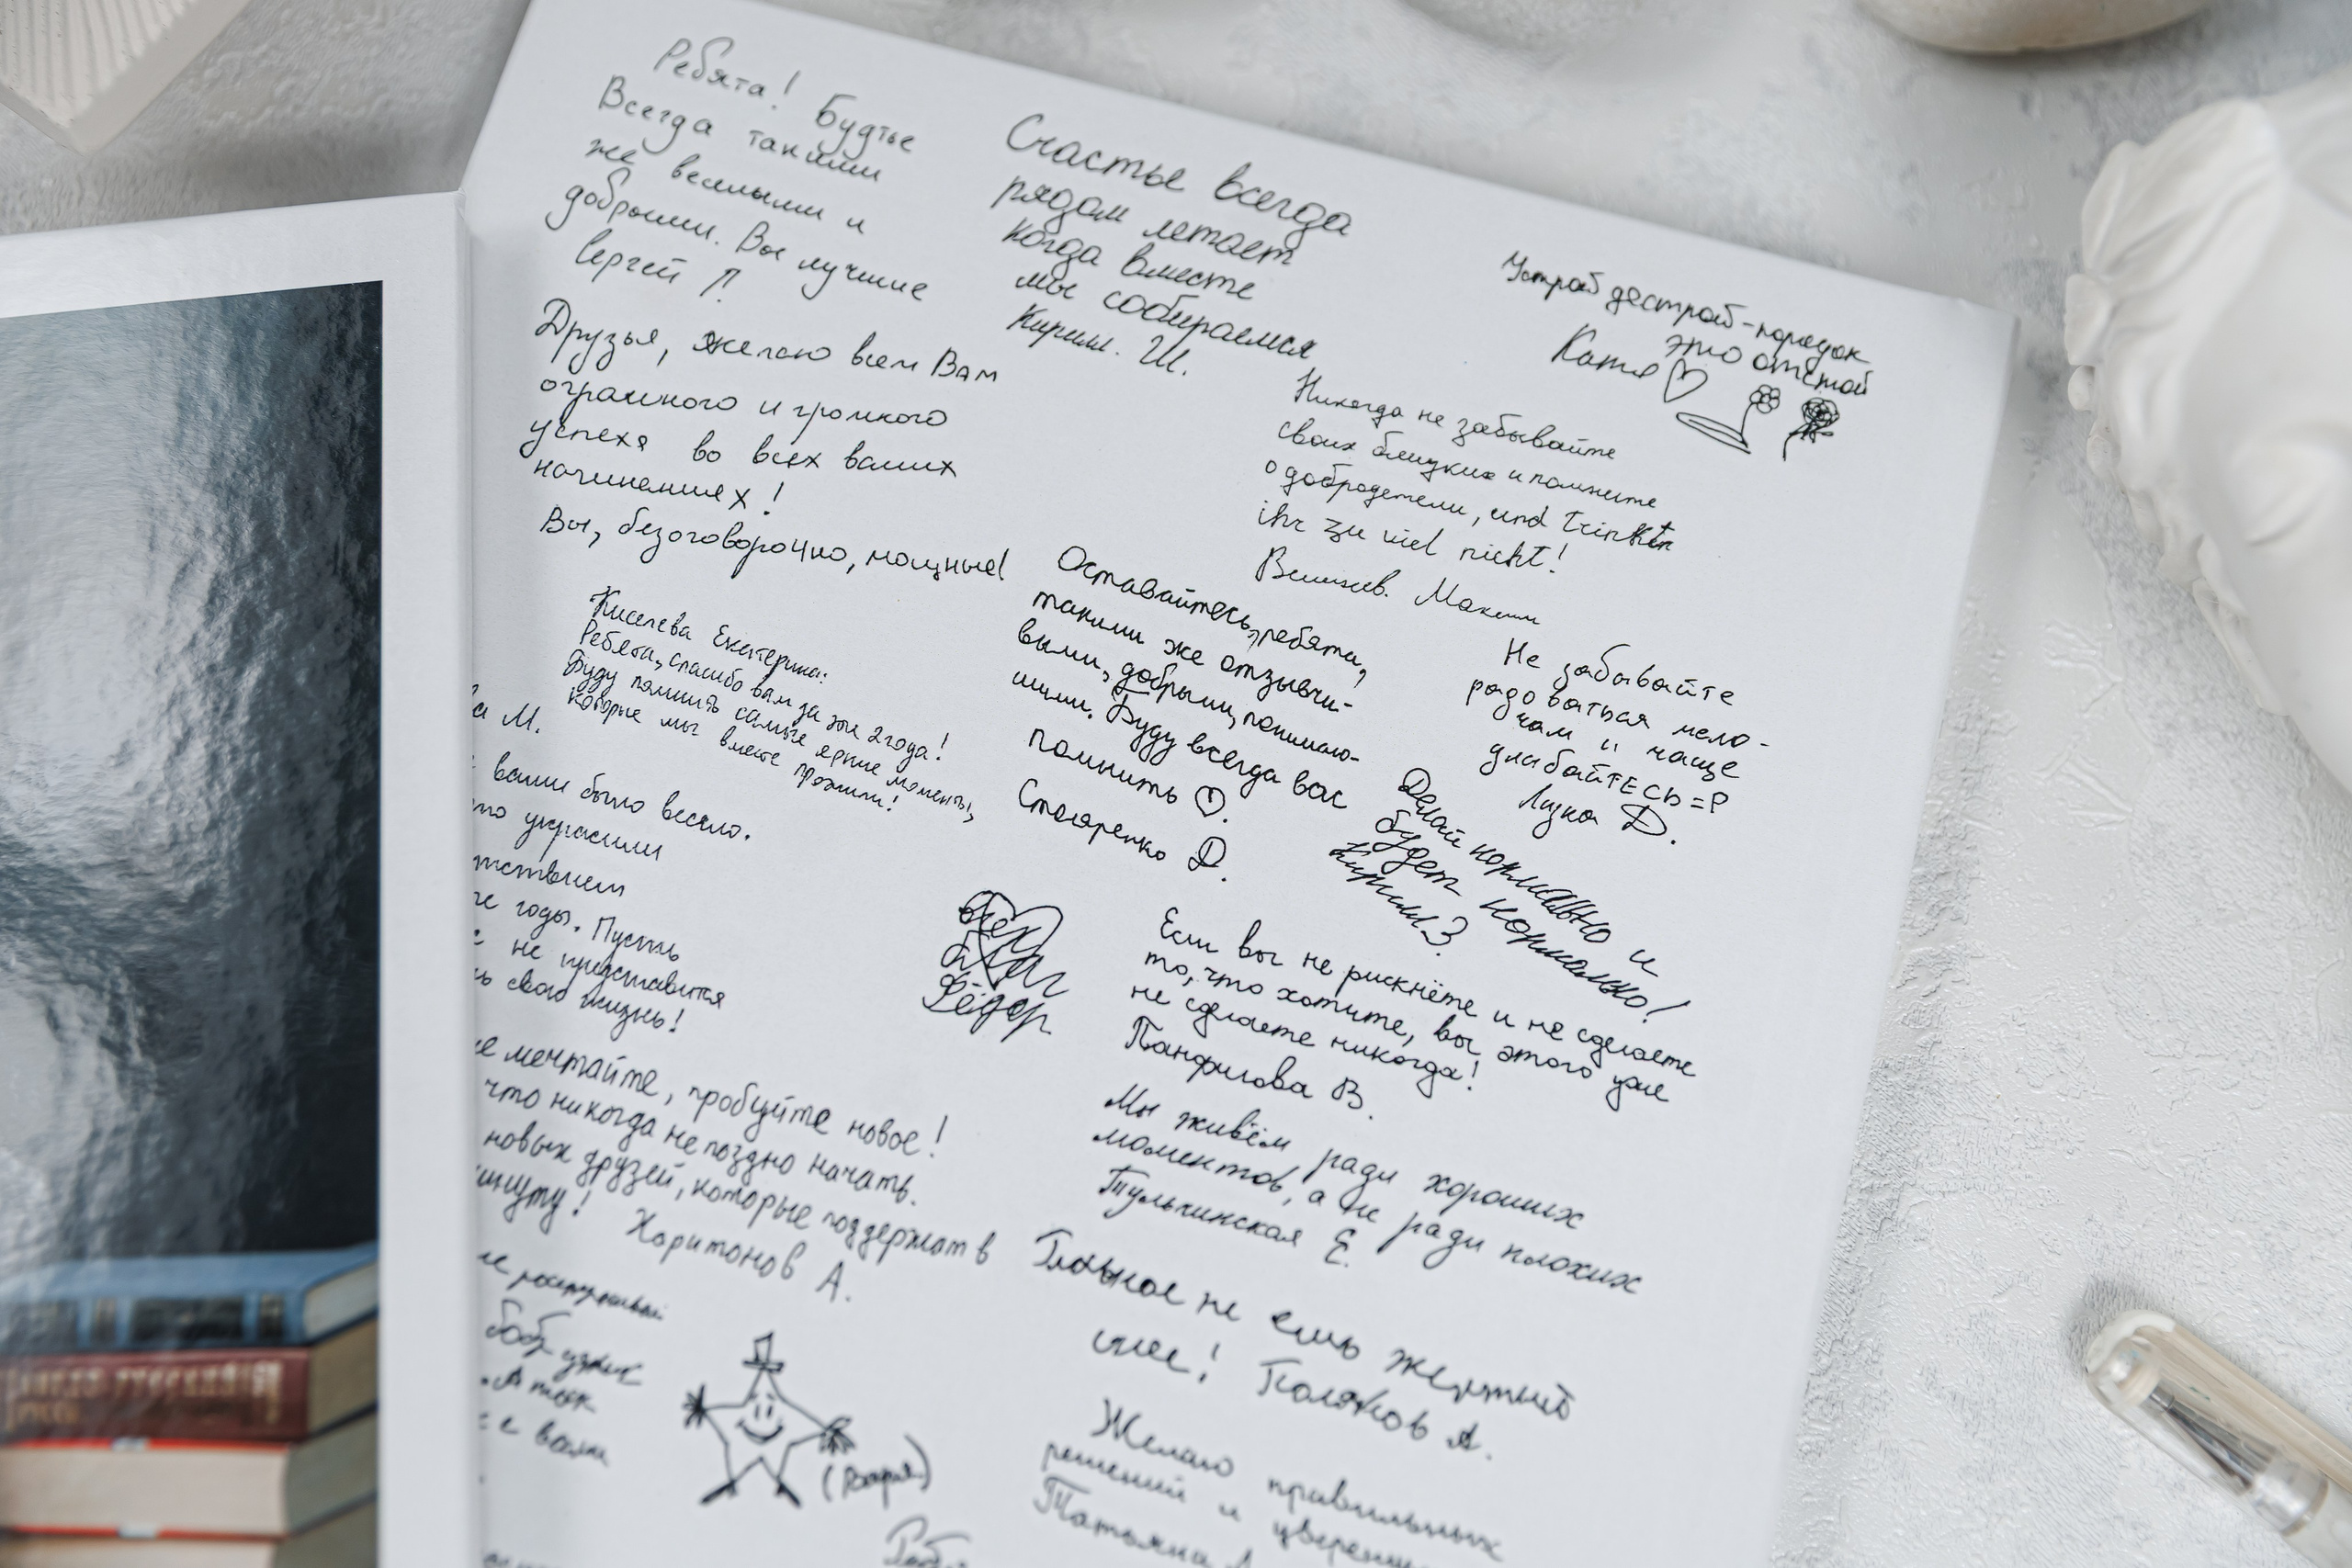 Ребята! Будтье
Всегда такими
же весёлыми и
добрыми. Вы лучшие
Сергей Л
Друзья, желаю всем Вам
огромного и громкого
успеха во всех ваших
начинаниях!
Вы, безоговорочно, мощные!
Киселева Екатерина:
Ребята, спасибо вам за эти 2 года!
Буду помнить самые яркие моменты,
которые мы вместе прожили!
ва М.
с вами было весело.
украсили
тствием
годы. Пусть
не представится
свою жизнь!
мечтайте, пробуйте новое!
что никогда не поздно начать.
новых друзей, которые поддержат в
минуту!
Харитонов А.
с вами
(Варя)
Счастье всегда
рядом летает
когда вместе
мы собираемся
Кирилл. Ш.
Устрой дестрой-порядок
это отстой
Катя
Никогда не забывайте
своих близких и помните
о добродетели, und trinken
ihr zu viel nicht!
Максим
Оставайтесь, ребята,
такими же отзывчи-
выми, добрыми, понимаю-
щими. Буду всегда вас
помнить ♡.
Столяренко Д.
Не забывайте
радоваться мело-
чам и чаще
улыбайтЕСЬ =P
Лизка Д.
Делай нормально и
будет нормально!
Кирилл З
Фёдор
Если вы не рискнёте и не сделаете
то, что хотите, вы этого уже
не сделаете никогда!
Панфилова В.
Мы живём ради хороших
моментов, а не ради плохих
Тульчинская Е.
Главное не ешь желтый
снег! Поляков А.
Желаю правильных
решений и
Татьяна Л